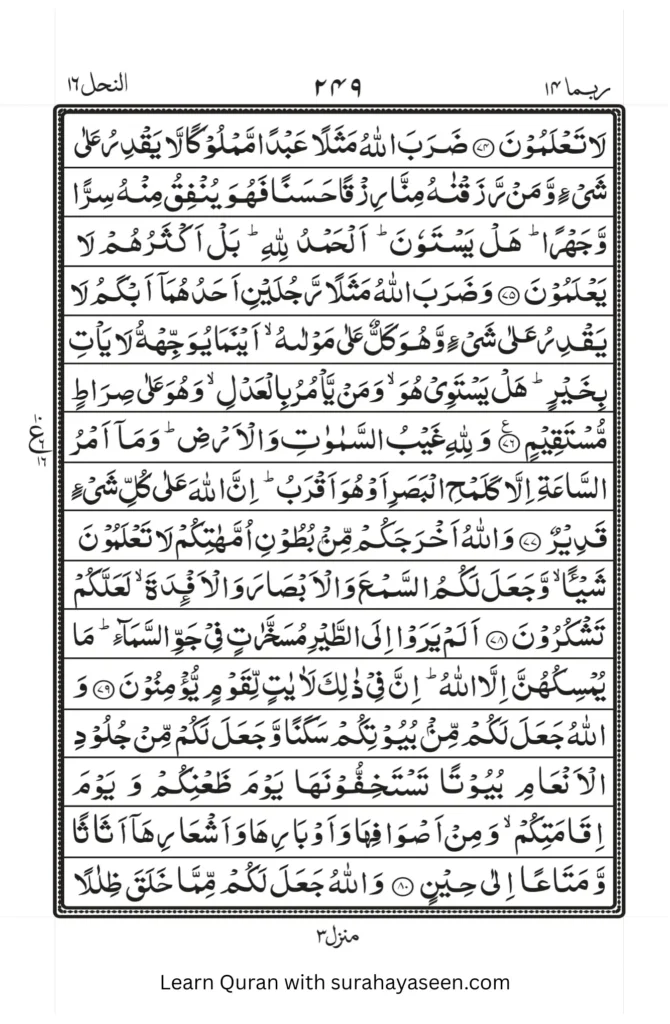 ربما ١٤ ٢٤٩ النحل ١٦
لَا تَعْلَمُوْنَ ﴿٧٤﴾ ضَرَبَ اللّٰهُ مَثَلًا عَبْدًا مَّمْلُوْكًا لَّا يَقْدِرُ عَلٰى
شَىْءٍ وَّمَنْ رَّزَقْنٰهُ مِنَّا رِزْقًا حَسَنًا فَهُوَ يُنْفِقُ مِنْهُ سِرًّا
وَّجَهْرًا ؕ هَلْ يَسْتَوٗنَ ؕ اَلْحَمْدُ لِلّٰهِ ؕ بَلْ اَكْثَرُهُمْ لَا
يَعْلَمُوْنَ ﴿٧٥﴾ وَضَرَبَ اللّٰهُ مَثَلًا رَّجُلَيْنِ اَحَدُهُمَاۤ اَبْكَمُ لَا
يَقْدِرُ عَلٰى شَىْءٍ وَّهُوَ كَلٌّ عَلٰى مَوْلٰٮهُ ۙ اَيْنَمَا يُوَجِّهْهُّ لَا يَاْتِ
بِخَيْرٍ ؕ هَلْ يَسْتَوِىْ هُوَ ۙ وَمَنْ يَّاْمُرُ بِالْعَدْلِ ۙ وَهُوَ عَلٰى صِرَاطٍ
مُّسْتَقِيْمٍ ﴿٧٦﴾ ع وَلِلّٰهِ غَيْبُ السَّمٰوٰتِ وَالْاَرْضِ ؕ وَمَاۤ اَمْرُ
١٠ ع ٦ ١٦
السَّاعَةِ اِلَّا كَلَمْحِ الْبَصَرِ اَوْ هُوَ اَقْرَبُ ؕ اِنَّ اللّٰهَ عَلٰى كُلِّ شَىْءٍ
قَدِيْرٌ ﴿٧٧﴾ وَاللّٰهُ اَخْرَجَكُمْ مِّنْۢ بُطُوْنِ اُمَّهٰتِكُمْ لَا تَعْلَمُوْنَ
شَيْـًٔا ۙ وَّجَعَلَ لَكُمُ السَّمْعَ وَالْاَبْصَارَ وَالْاَفْـِٕدَةَ ۙ لَعَلَّكُمْ
تَشْكُرُوْنَ ﴿٧٨﴾ اَلَمْ يَرَوْا اِلَى الطَّيْرِ مُسَخَّرٰتٍ فِىْ جَوِّ السَّمَآءِ ؕ مَا
يُمْسِكُهُنَّ اِلَّا اللّٰهُ ؕ اِنَّ فِىْ ذٰلِكَ لَاٰيٰتٍ لِّقَوْمٍ يُّؤْمِنُوْنَ ﴿٧٩﴾ وَ
اللّٰهُ جَعَلَ لَكُمْ مِّنْۢ بُيُوْتِكُمْ سَكَنًا وَّجَعَلَ لَكُمْ مِّنْ جُلُوْدِ
الْاَنْعَامِ بُيُوْتًا تَسْتَخِفُّوْنَهَا يَوْمَ ظَعْنِكُمْ وَ يَوْمَ
اِقَامَتِكُمْ ۙ وَمِنْ اَصْوَافِهَا وَاَوْبَارِهَا وَاَشْعَارِهَاۤ اَثَاثًا
وَّمَتَاعًا اِلٰى حِيْنٍ ﴿٨٠﴾ وَاللّٰهُ جَعَلَ لَكُمْ مِّمَّا خَلَقَ ظِلٰلًا
منزل ٣
Learn Quran with surahayaseen.com